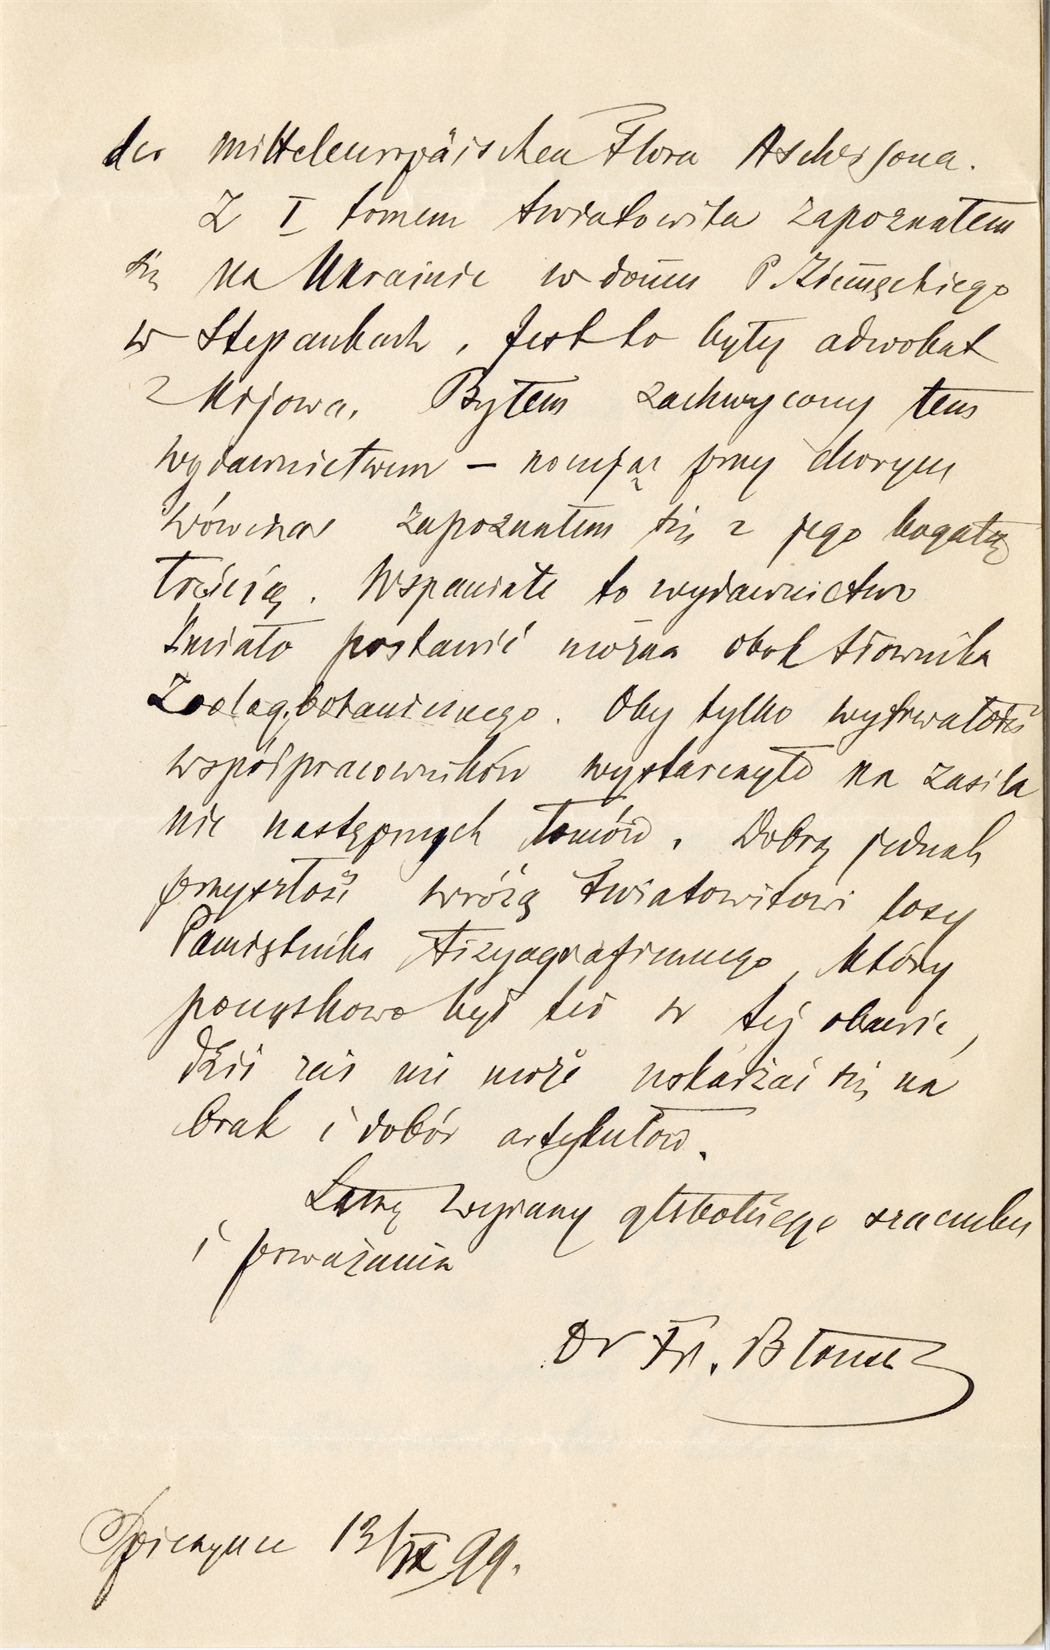 der mitteleuropäischen Flora Aschersona.
Z I tomem Światowita zapoznałem
się na Ukrainie w domu P. Ziemęckiego
w Stepankach. Jest to były adwokat
z Kijowa. Byłem zachwycony tem
wydawnictwem – nocując przy chorym
wówczas zapoznałem się z jego bogatą
treścią. Wspaniałe to wydawnictwo
śmiało postawić można obok Słownika
Zoolog. botanicznego. Oby tylko wytrwałość
współpracowników wystarczyło na zasila
nie następnych tomów. Dobrą jednak
przyszłość wróżą Światowitowi losy
Pamiętnika Fizyograficznego, który
początkowo był też w tej obawie,
dziś zaś nie może uskarżać się na
brak i dobór artykułów.
Łączę wyrazy głębokiego szacunku
i poważania
Dr Fr. Błoński
Spiczynce 13/IX 99.